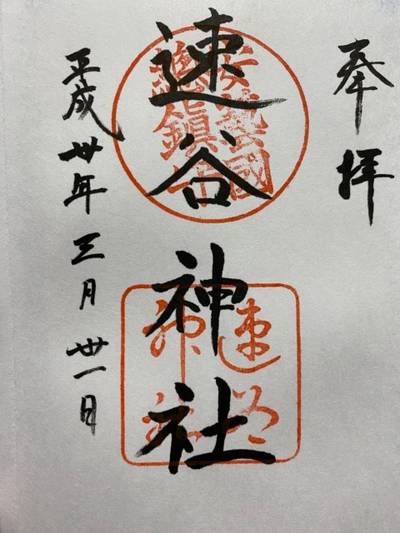 奉拝
安藝國
總鎮守
速谷神社
速谷
神社
平成丗年三月丗一日